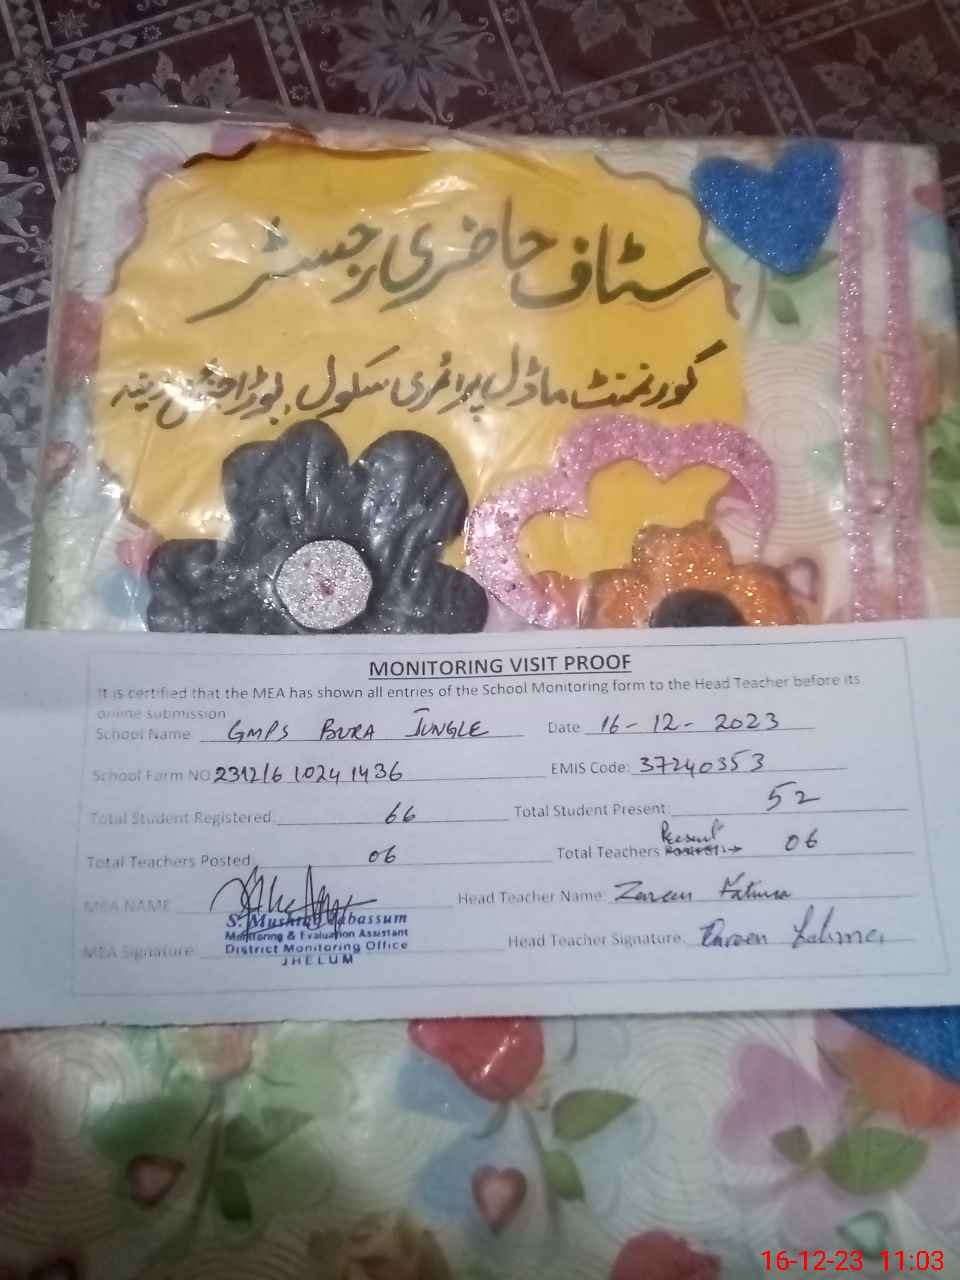 سٹاف حاضری رجسٹر
گورنمنٹ ماڈل پرائمری سکول بوڑا جنگل دینہ
MONITORING VISIT PROOF
It is certified that the MEA has shown all entries of the School Monitoring form to the Head Teacher before its
online submission
School Name GMPS BURA JUNGLE Date 16-12-2023
School Form NO 2312161024 1436 EMIS Code: 37240353
Total Student Registered: 66 Total Student Present: 52
Total Teachers Posted: 06 Total Teachers Present → 06
MEA NAME Head Teacher Name: Zareen Fatima
S. Mushtaq Tabassum
Monitoring & Evaluation Assistant
MEA Signature: District Monitoring Office Head Teacher Signature:
JHELUM
16-12-23 11:03